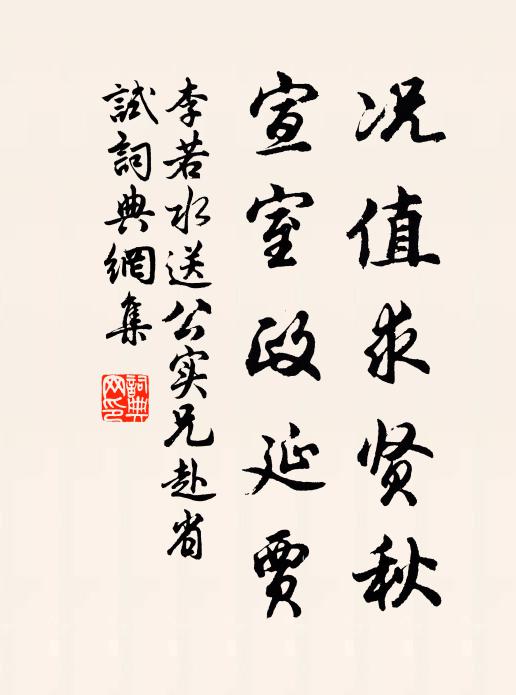 况值求贤秋
宣室政延贾
李若水送公实兄赴省
试詞典網集
詞典
网印